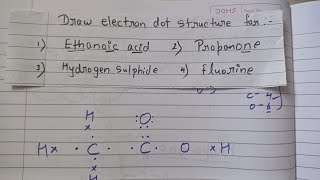 Draw electron dot structure for :-
1) Ethanoic acid 2) Propanone
3) Hydrogen Sulphide 4) fluorine
C - 4
O - 6
H O
H C C O H
H